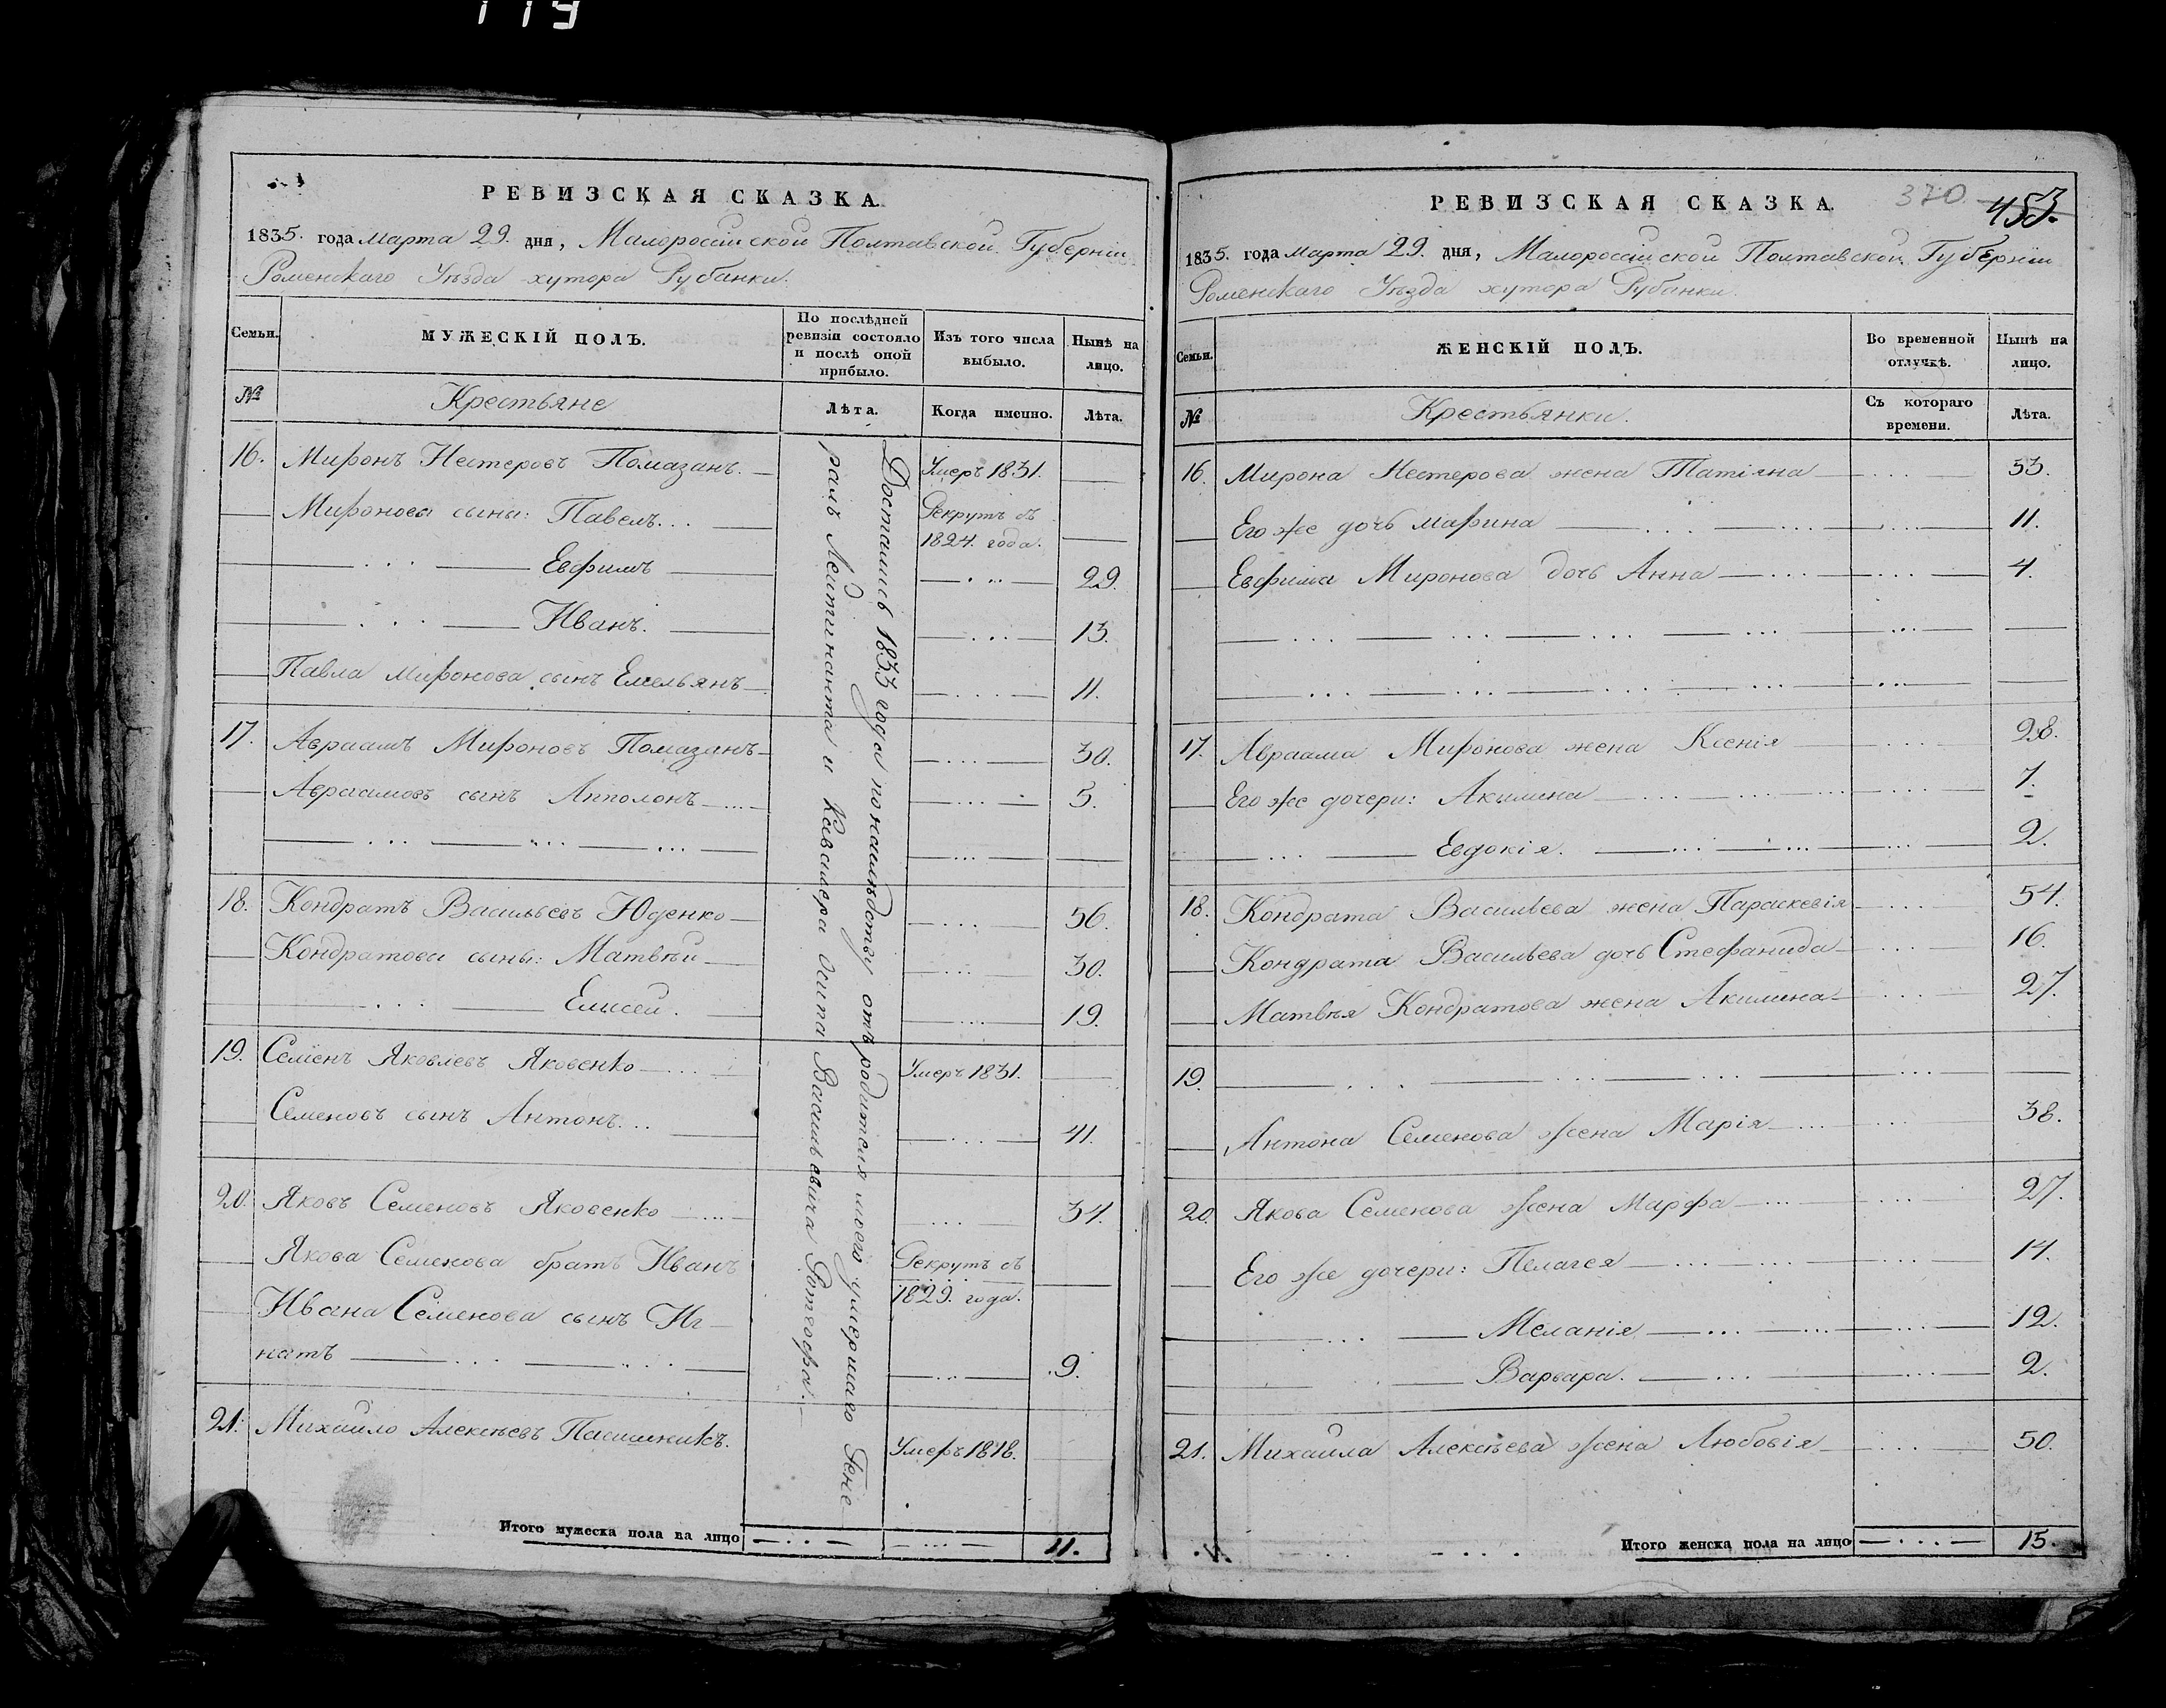 119
РЕВИЗСКАЯ СКАЗКА.
1835. года Марта 29. дня, Малоросcійской Полтавской Губерніи
Роменскаго Уѣзда хутора Рубанки.
Семьи.
МУЖЕСКІЙ ПОЛЪ.
По послѣдней ревизіи состояло и послѣ оной прибыло.
Изъ того числа выбыло.
Нынѣ на лицо.
№
Крестьяне
Лѣта.
Когда именно.
Лѣта.
16. Миронъ Нестеровъ Помазанъ. Умеръ 1831.
Миронова сыны: Павелъ... Рекрутъ съ
1824. года.
Евфимъ 29.
Иванъ. 13.
Павла Миронова сынъ Емельянъ 11.
17. Авраамъ Мироновъ Помазанъ 30.
Авраамовъ сынъ Апполонъ 5.
18. Кондратъ Васильевъ Юденко 56.
Кондратовы сыны: Матвѣй 30.
Елисей. 19.
19. Семенъ Яковлевъ Яковенко Умеръ 1831.
Семеновъ сынъ Антонъ... 41.
20. Яковъ Семеновъ Яковенко 34.
Якова Семенова братъ Иванъ Рекрутъ съ
1829. года.
Ивана Семенова сынъ Иг-
натъ 9.
21. Михайло Алексѣевъ Пасишникъ. Умеръ 1818.
Достались 1833 года по наслѣдству отъ родителя моего умершаго Гене-
ралъ Лейтинанта и Кавалера Осипа Васильевича
Итого мужеска пола на лицо 11.
РЕВИЗСКАЯ СКАЗКА.
370. 453.
1835. года марта 29. дня, Малоросcійской Полтавской Губерніи
Роменскаго Уѣзда хутора Рубанки.
Семьи.
ЖЕНСКІЙ ПОЛЪ.
Во временной отлучкѣ.
Нынѣ на лицо.
№
Крестьянки.
Съ котораго времени.
Лѣта.
16. Мирона Нестерова жена Татіяна 53.
Его же дочь марина 11.
Евфима Миронова дочь Анна 4.
17. Авраама Миронова жена Ксенія 28.
Его же дочери: Акилина 7.
Евдокія. 2.
18. Кондрата Васильева жена Параскевія 54.
Кондрата Васильева дочь Стефанида 16.
Матвѣя Кондратова жена Акилина 27.
19.
Антона Семенова жена Марія 38.
20. Якова Семенова жена Марфа 27.
Его же дочери: Пелагея 14.
Меланія 12.
Варвара. 2.
21. Михайла Алексѣева жена Любовія 50.
Итого женска пола на лицо 15.